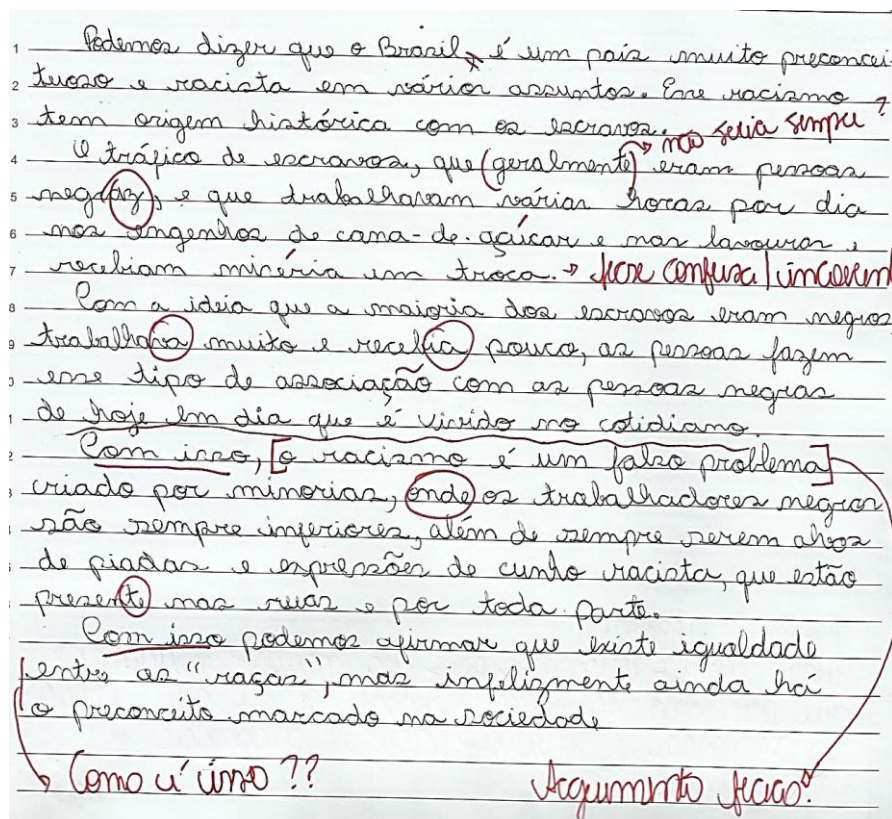 1 Podemos dizer que o Brasil x é um país muito preconcei-
2 tuoso e racista em vários assuntos. Esse racismo
3 tem origem histórica com os escravos. → não seria sempre?
4 O tráfico de escravos, que (geralmente) eram pessoas
5 negraz, e que trabalhavam várias horas por dia
6 nos engenhos de cana-de-açúcar e nas lavouras e
7 recebiam miséria em troca. → frase confusa/incoerent
8 Com a ideia que a maioria dos escravos eram negros
9 trabalhava muito e recebia pouco, as pessoas fazem
0 esse tipo de associação com as pessoas negras
1 de hoje em dia que é vivido no cotidiano.
2 Com isso, [o racismo é um falso problema]
3 criado por minorias, onde os trabalhadores negros
são sempre inferiores, além de sempre serem alvos
5 de piadas e expressões de cunho racista, que estão
presente nas ruas e por toda parte.
Com isso podemos afirmar que existe igualdade
entre as "raças", mas infelizmente ainda há
o preconceito marcado na sociedade
Como é isso ?? Argumento fraco!